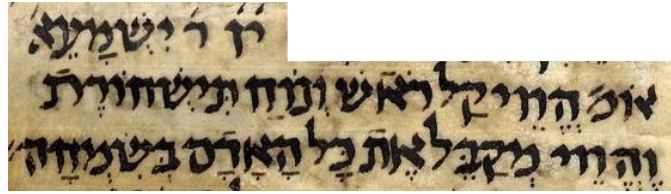 ין ר׳ יִשְׁמָעֵא׳
אומ׳ הֱוֵוי קַל רֹאשׁ וְנוֹחַ תִּישְׁחוֹרֶת
וֶהֱוֵוי מְקַבֵּל אֶת כָּל הָאָדָם בְּשִׂמְחָה